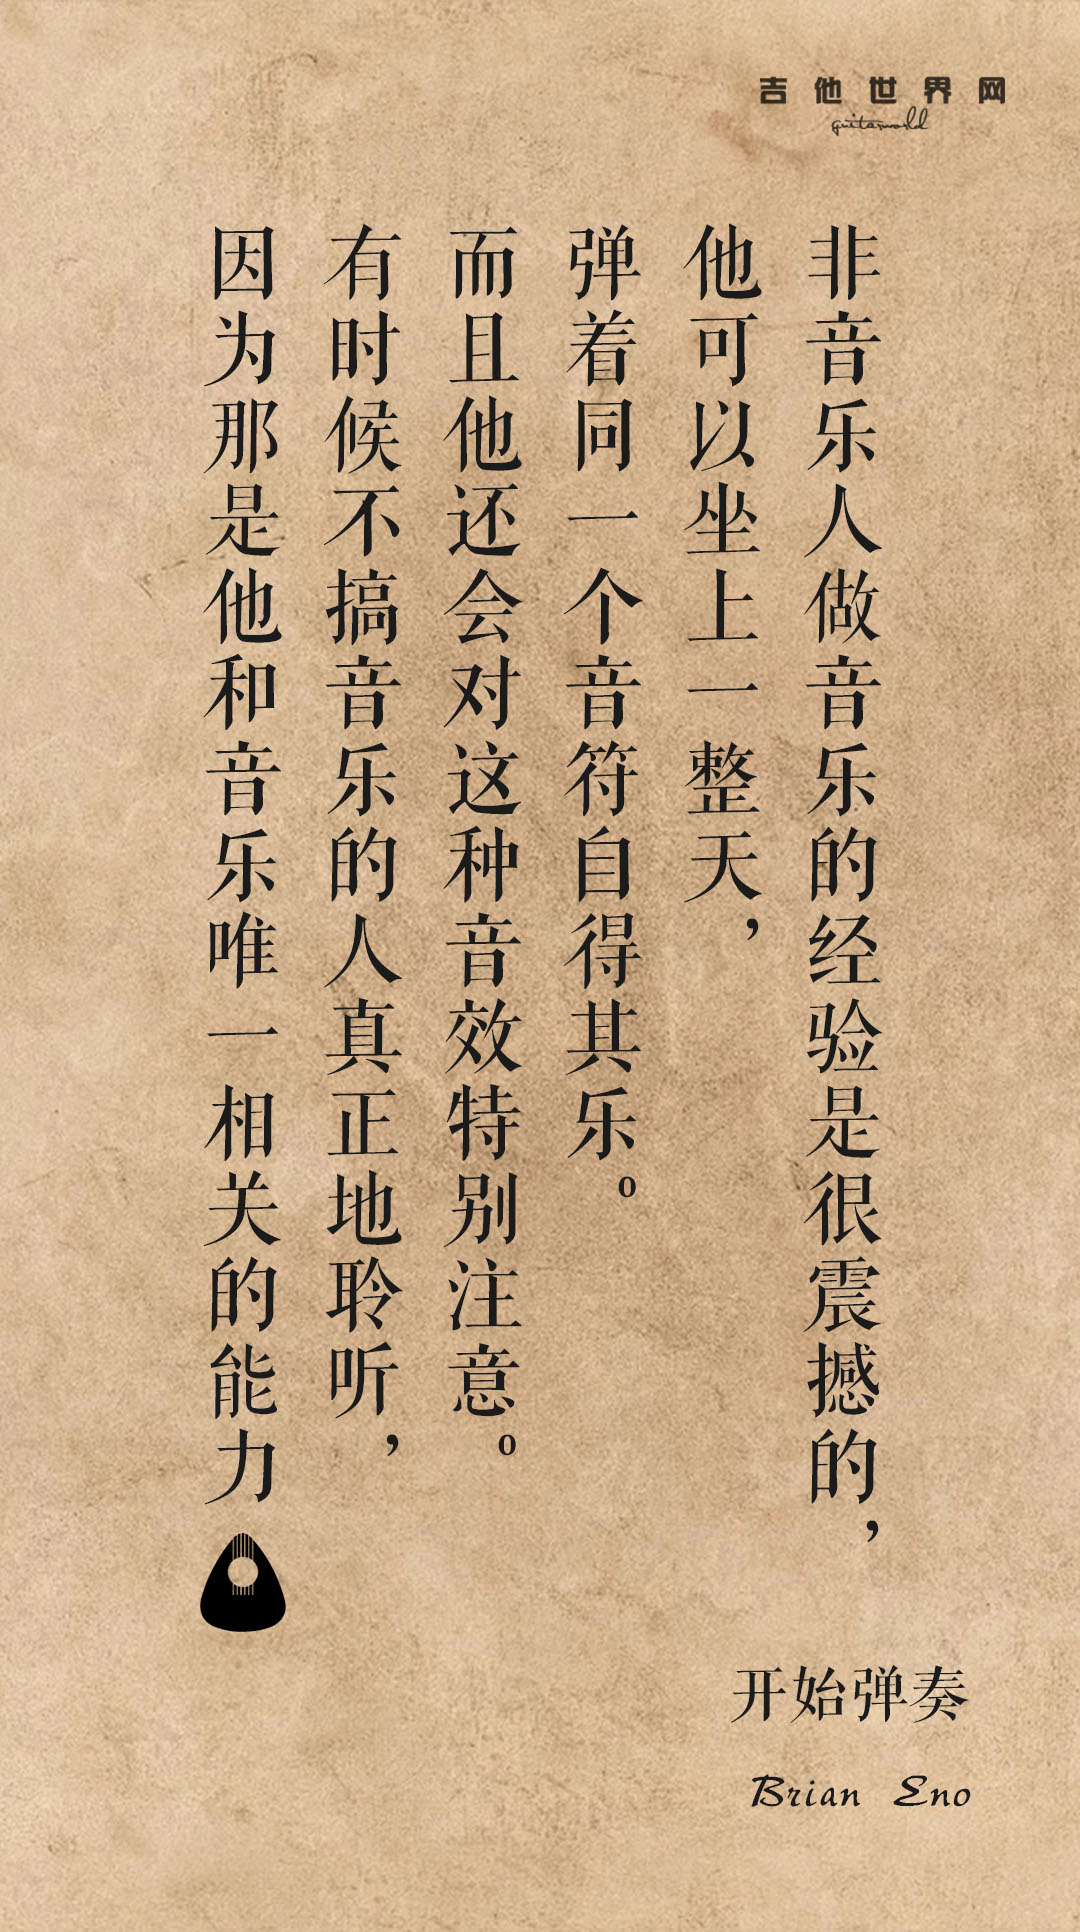 吉他世界网
guitarworld
非音乐人做音乐的经验是很震撼的，
他可以坐上一整天，
弹着同一个音符自得其乐。
而且他还会对这种音效特别注意。
有时候不搞音乐的人真正地聆听，
因为那是他和音乐唯一相关的能力
开始弹奏
Brian Eno